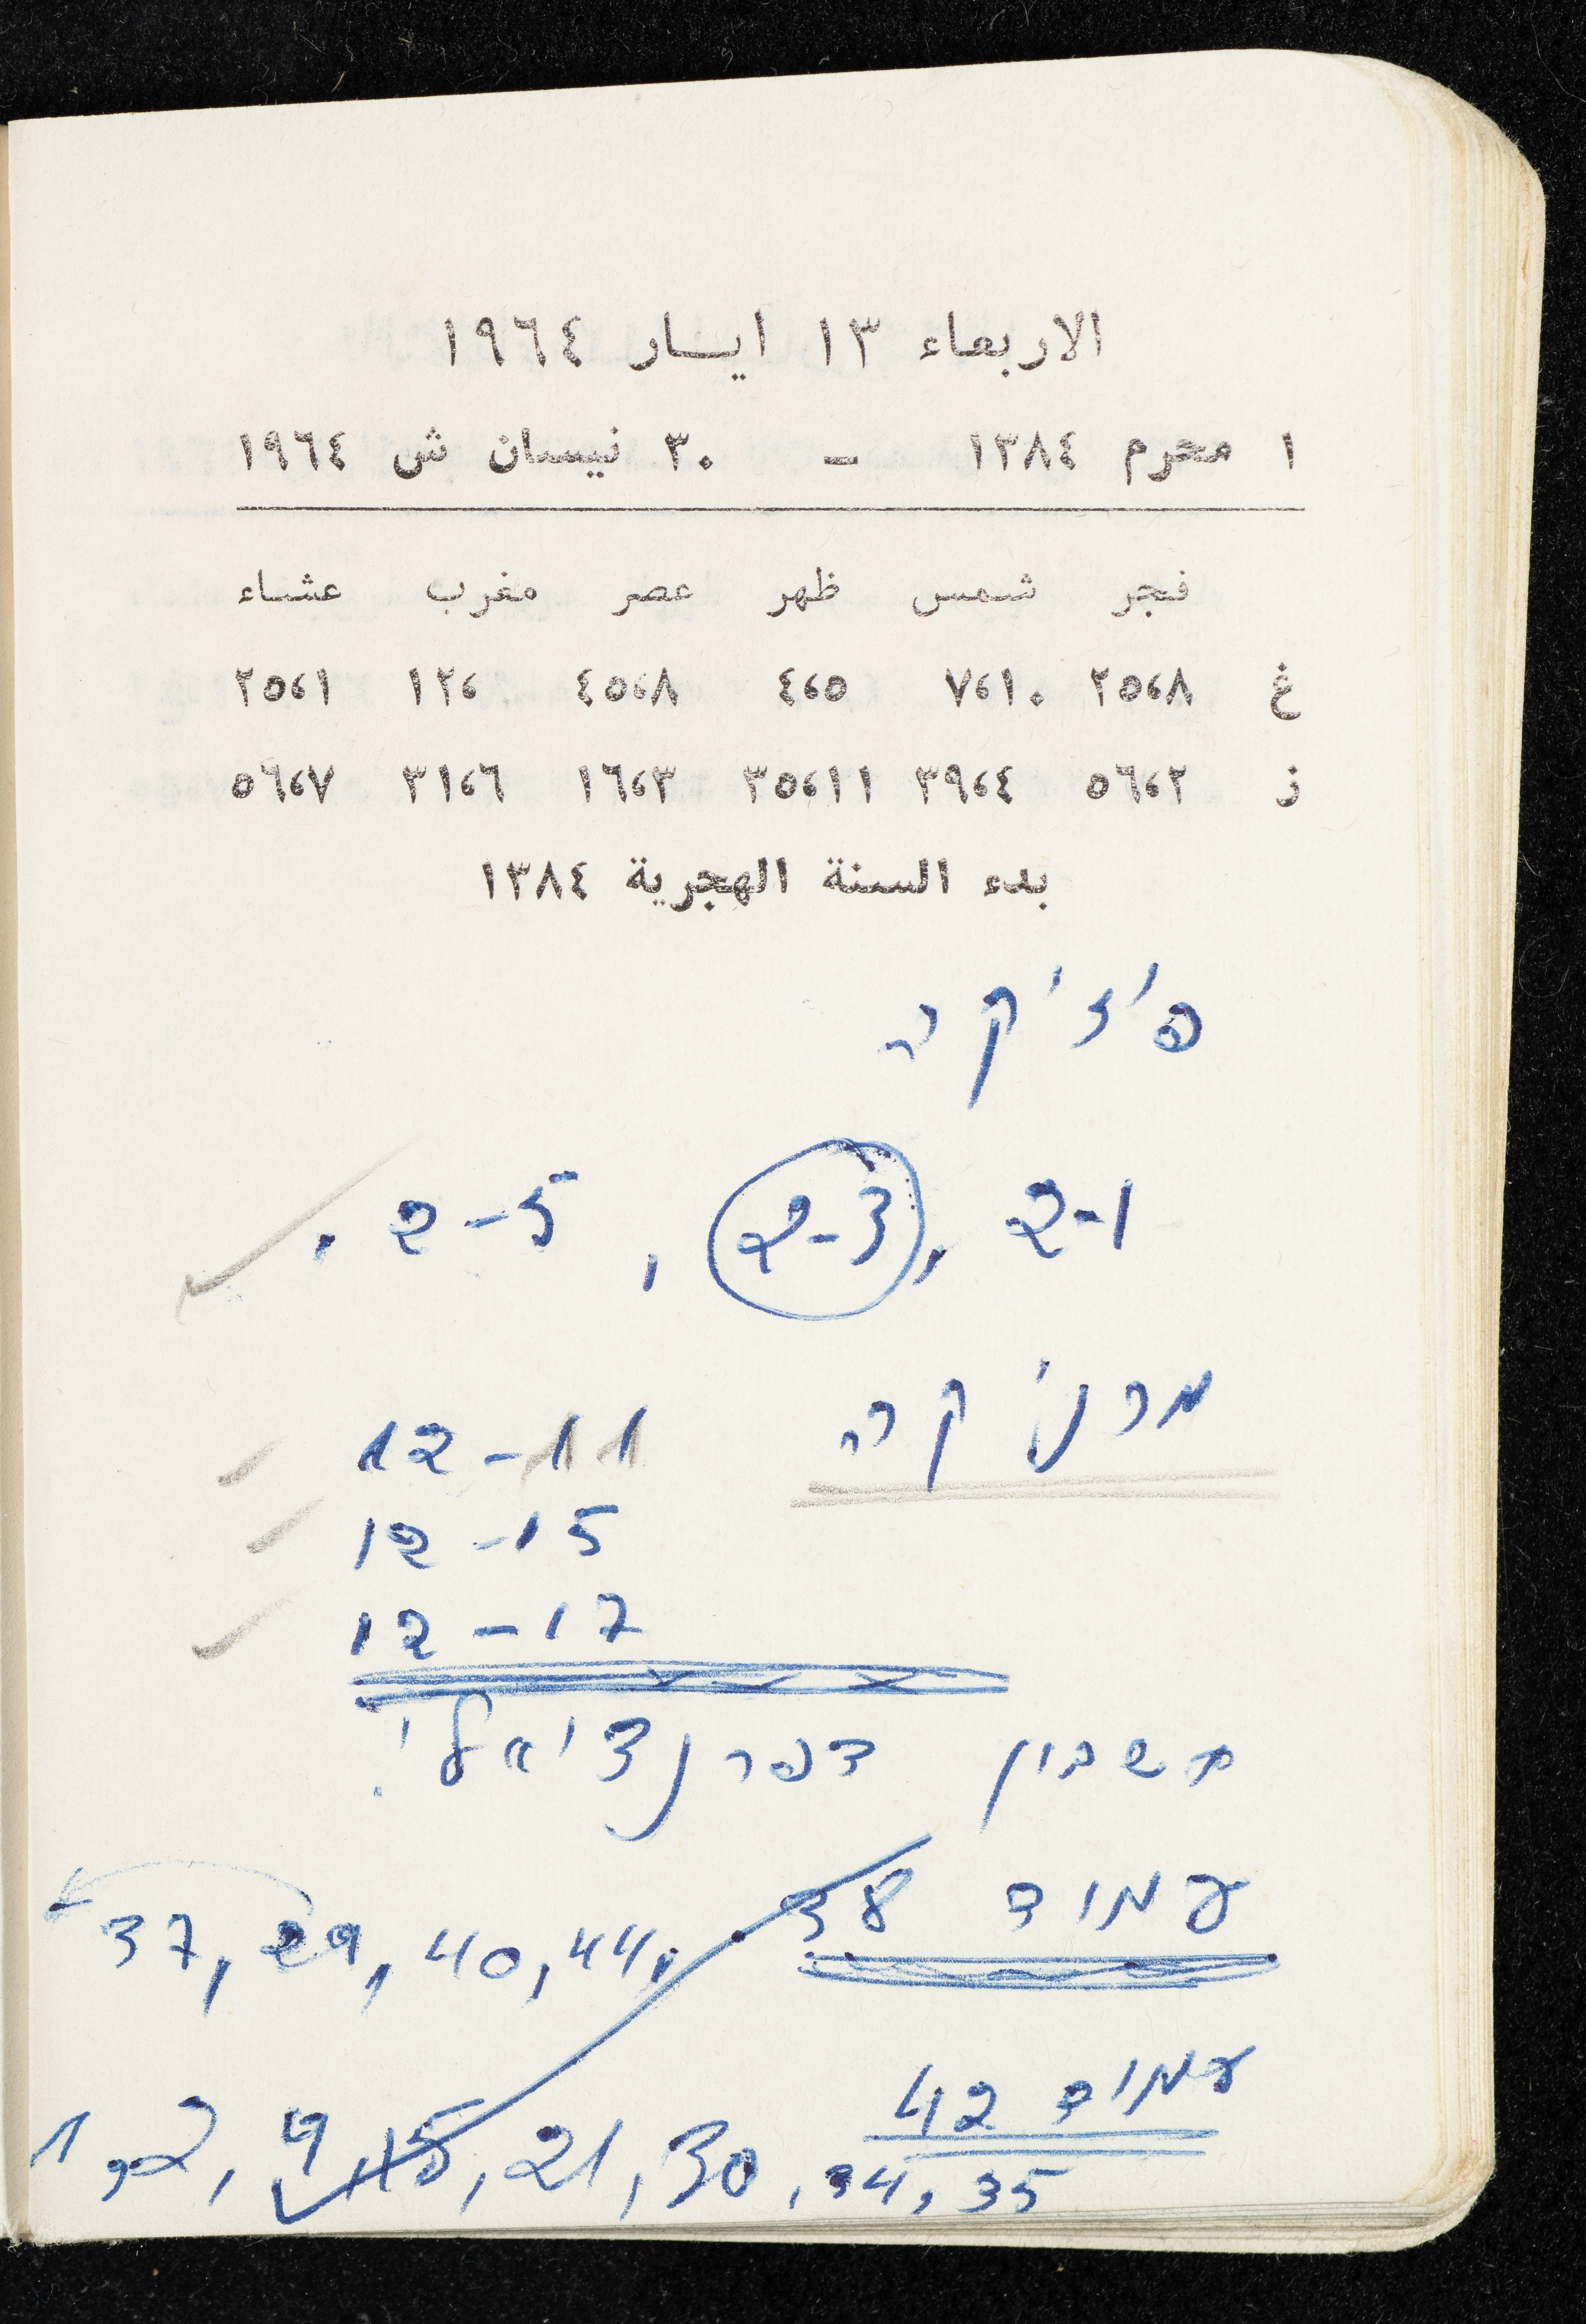 الاربعاء ١٣ ايسار ١٩٦٤
١ محرم ١٣٨٤ - ٣٠ نيسان ش ١٩٦٤
فجر شمس ظهر عصر مغرب عشاء
غ ٢٥،٨ ٧،١٠ ٤،٥ ٤٥،٨ ١٢، ٢٥،١
ز ٥٦،٢ ٣٩،٤ ٣٥،١١ ١٦،٣ ٣١،٦ ٥٦،٧
بدء السنة الهجرية ١٣٨٤
פיזיקה
2-1 , 2-3 , 2-5 .
12-11
12-15
12-17
חשבון דפרנציאלי.
עמוד 38 37, 29, 40, 44,
עמוד 42
1, 2, 9, 15, 21, 30, 34, 35